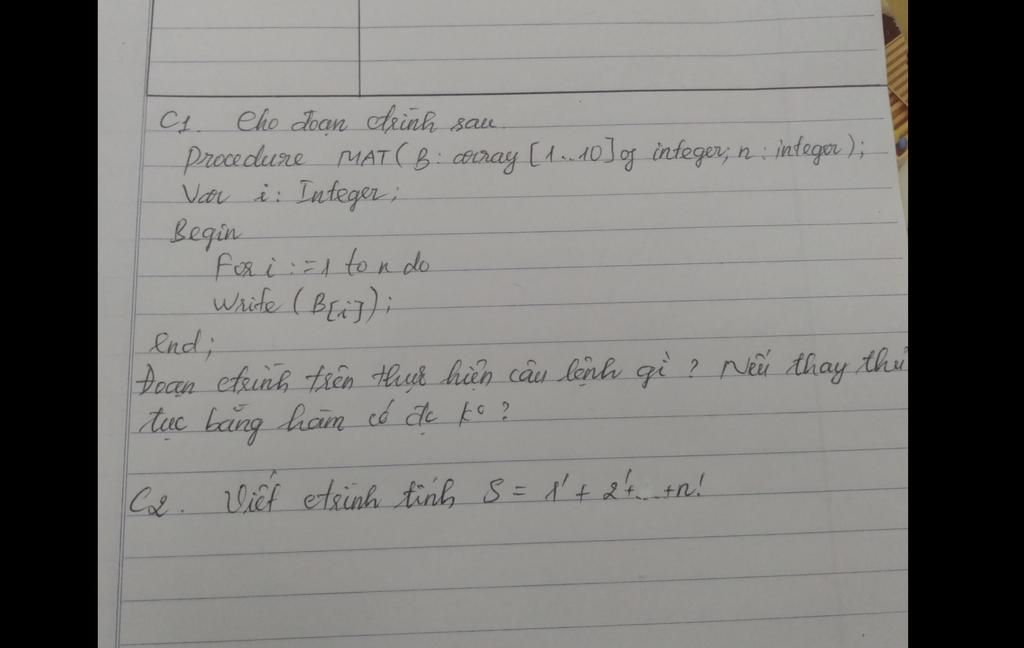 C1. Cho đoạn ctrình sau.
Procedure MAT(B: array [1..10] of integer; n: integer);
Var i: Integer;
Begin
For i:=1 to n do
Write (B[i]);
End;
Đoạn ctrình trên thực hiện câu lệnh gì? Nếu thay thủ
tục bằng hàm có đc ko?
C2. Viết ctrình tính S = 1! + 2!+...+n!